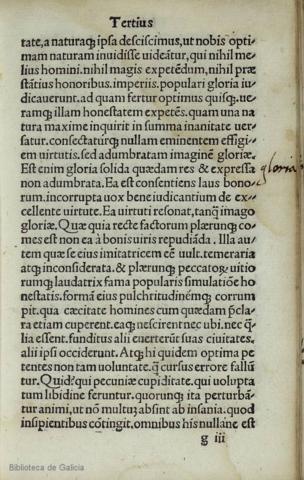 Tertius
tate, a naturaq; ipsa desciscimus, ut nobis opti-
mam naturam inuidisse uideãtur, qui nihil me-
lius homini. nihil magis expetẽdum, nihil præ
stãtius honoribus. imperiis. populari gloria iu-
dicauerunt. ad quam fertur optimus quisq;. ue-
ramq; illam honestatem expetẽs. quam una na
tura maxime inquirit in summa inanitate uer-
satur. consectaturq; nullam eminentem effigi-
em uirtutis. sed adumbratam imaginẽ gloriæ.
Est enim gloria solida quædam res & expressa
non adumbrata. Ea est consentiens laus bono-
rum. incorrupta uox bene iudicantium de ex-
cellente uirtute. Ea uirtuti resonat, tanq̃ imago
gloriæ. Quæ quia recte factorum plærunq; co-
mes est non ea à bonis uiris repudiãda. Illa au-
tem quæ se eius imitatricem eẽ uult. temeraria
atq; inconsiderata. & plærunq; peccatoꝝ uitio
rumq; laudatrix fama popularis simulatiõe ho
nestatis. formã eius pulchritudinẽmq; corrum
pit. qua cæcitate homines cum quædam p̃cla-
ra etiam cuperent. eaq; nescirent nec ubi. nec q̃-
lia essent. funditus alii euerterũt suas ciuitates.
alii ipsi occiderunt. Atq; hi quidem optima pe
tentes non tam uoluntate. q̃ cursus errore fallũ
tur. Quid? qui pecuniæ cupiditate. qui uolupta
tum libidine feruntur. quorunq; ita perturbã-
tur animi, ut nõ multuꝫ absint ab insania. quod
insipientibus cõtingit, omnibus his nullane est
g iii
gloria
Biblioteca de Galicia